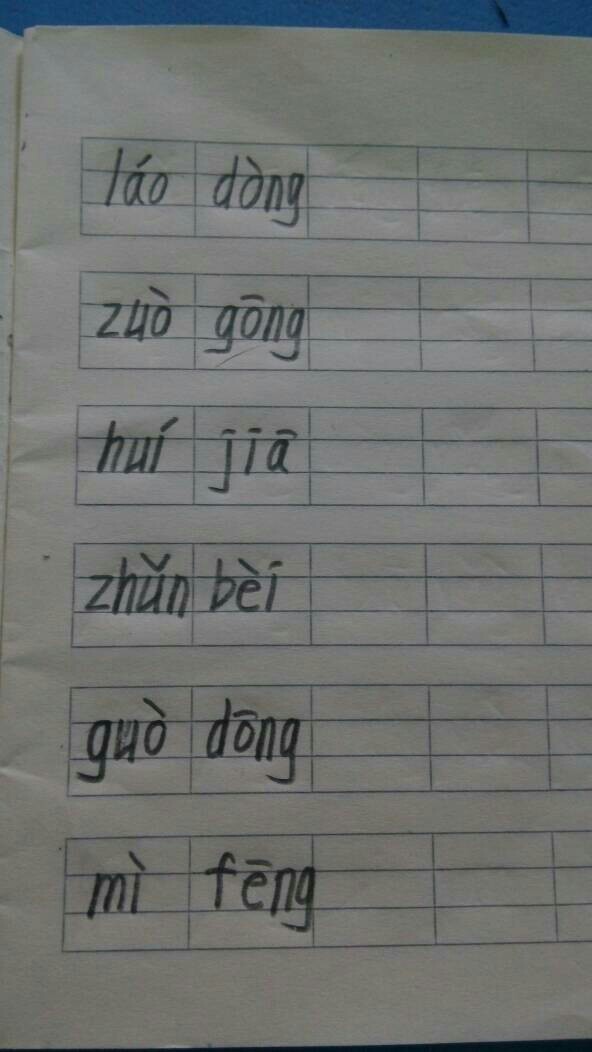 láo dòng
zuò gōng
huí jiā
zhǔn bèi
guò dōng
mì fēng